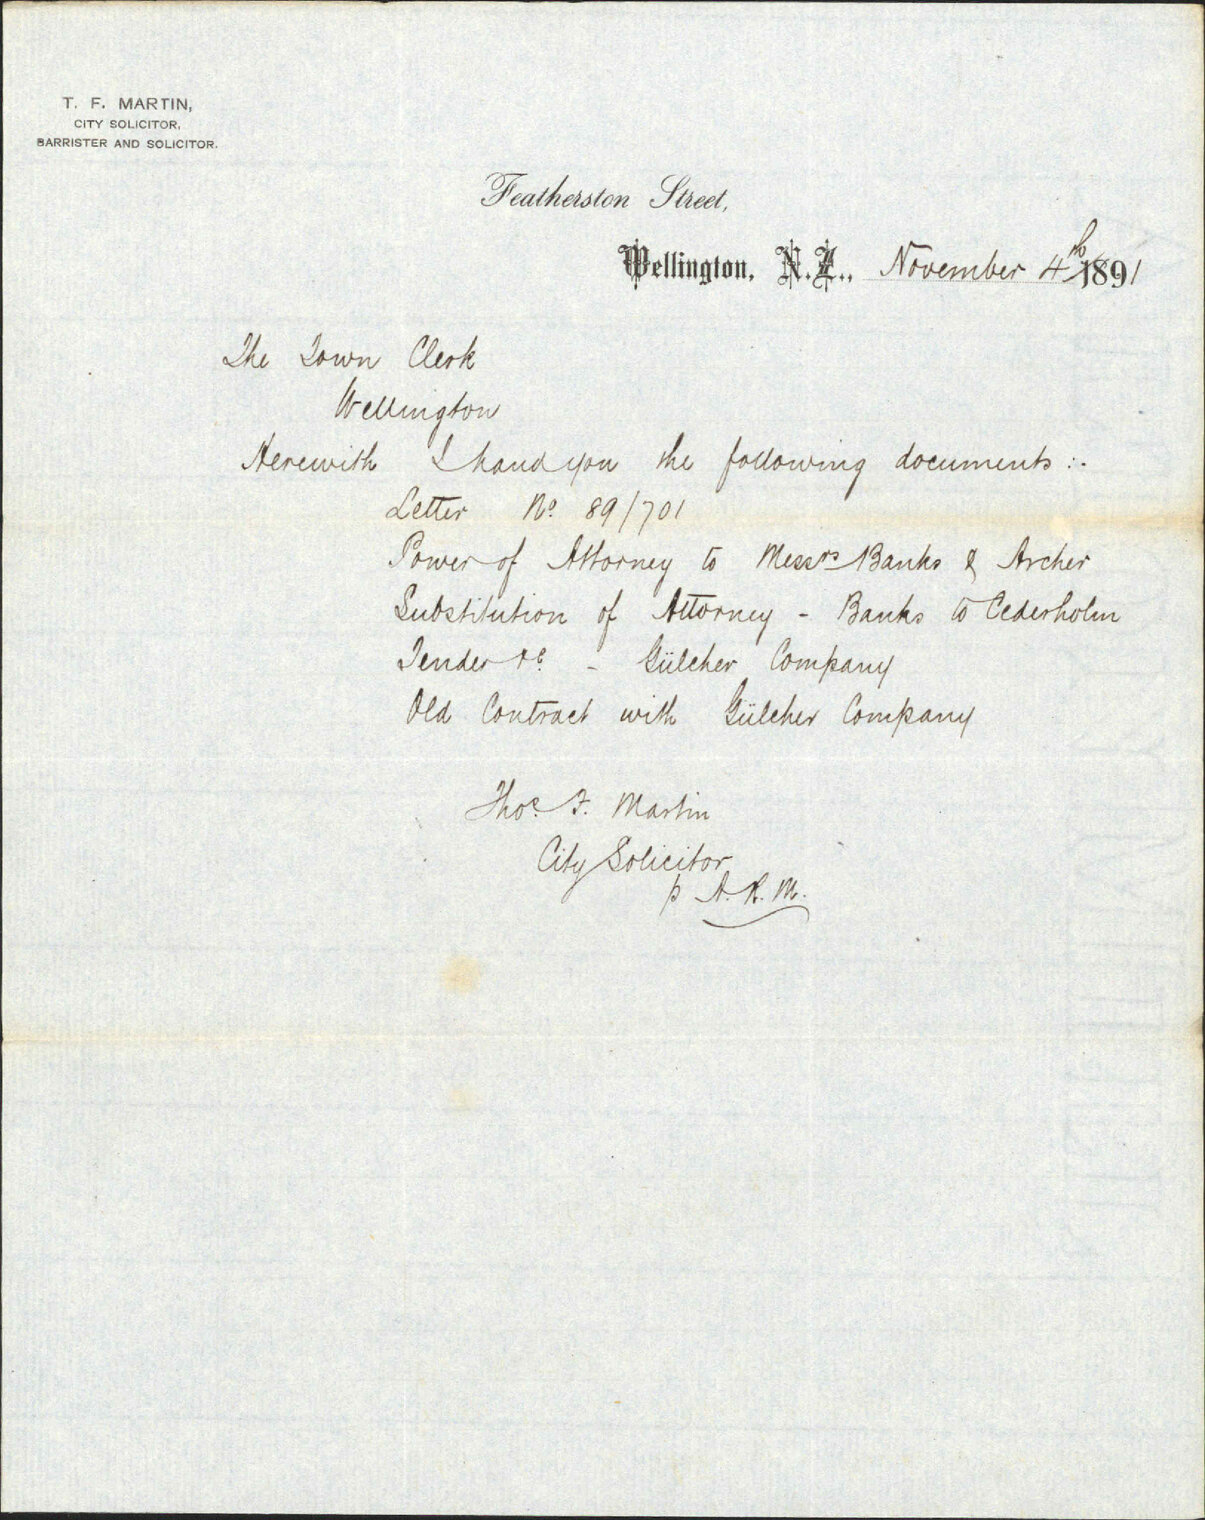 T. F. MARTIN,
CITY SOLICITOR,
BARRISTER AND SOLICITOR.
Featherston Street,
Wellington, N.Z., November 4th 1891
The Town Clerk
Wellington
Herewith I hand you the following documents :-
Letter No. 89/701
Power of Attorney to Messrs Banks & Archer
Substitution of Attorney - Banks to Cederholm
Tender &c. - Gülcher Company
Old Contract with Gülcher Company
Thos. F. Martin
City Solicitor
p A. R. M.